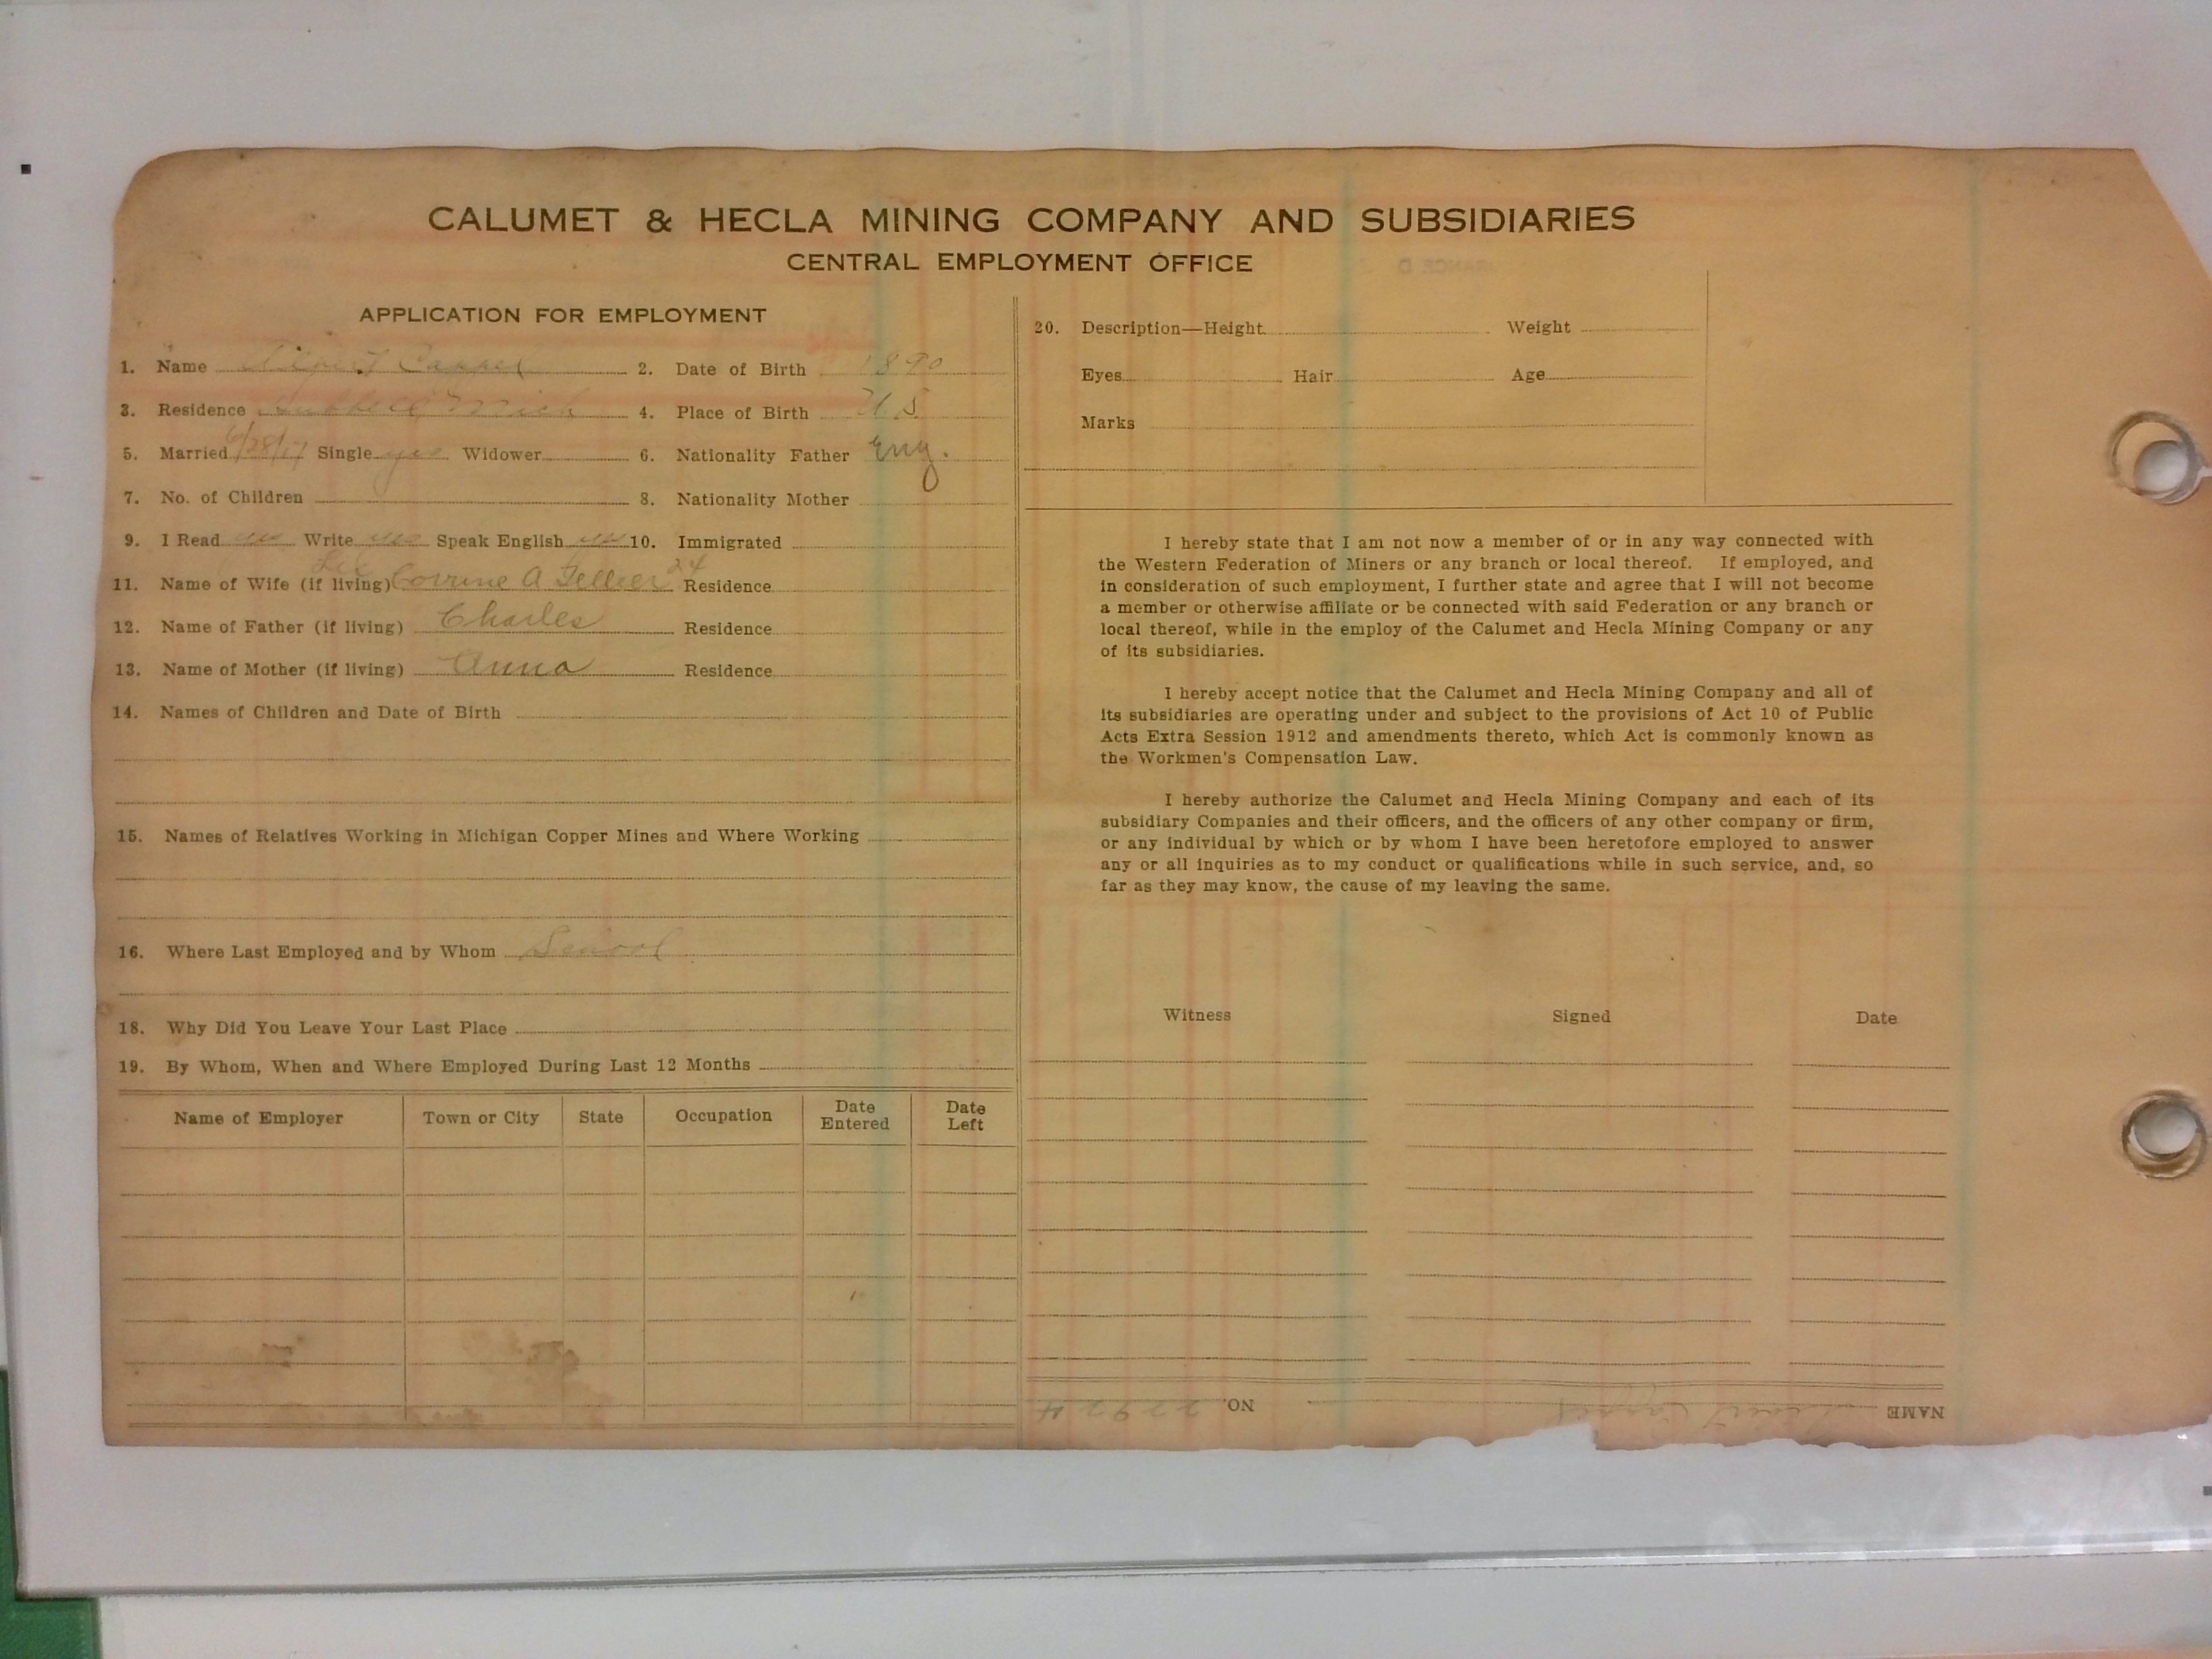 CALUMET & HECLA MINING COMPANY AND SUBSIDIARIES
CENTRAL EMPLOYMENT OFFICE
APPLICATION FOR EMPLOYMENT
1. Name Cappel 2. Date of Birth 1890
3. Residence Hubbell Mich 4. Place of Birth U.S.
5. Married 6/28/17 Single yes Widower 6. Nationality Father Eng.
7. No. of Children 8. Nationality Mother
9. I Read yes Write yes Speak English yes 10. Immigrated
11. Name of Wife (if living) Corrine A Tellier 24 Residence
12. Name of Father (if living) Charles Residence
13. Name of Mother (if living) Anna Residence
14. Names of Children and Date of Birth
15. Names of Relatives Working in Michigan Copper Mines and Where Working
16. Where Last Employed and by Whom School
18. Why Did You Leave Your Last Place
19. By Whom, When and Where Employed During Last 12 Months
Name of Employer Town or City State Occupation Date Entered Date Left
20. Description—Height Weight
Eyes Hair Age
Marks
I hereby state that I am not now a member of or in any way connected with
the Western Federation of Miners or any branch or local thereof. If employed, and
in consideration of such employment, I further state and agree that I will not become
a member or otherwise affiliate or be connected with said Federation or any branch or
local thereof, while in the employ of the Calumet and Hecla Mining Company or any
of its subsidiaries.
I hereby accept notice that the Calumet and Hecla Mining Company and all of
its subsidiaries are operating under and subject to the provisions of Act 10 of Public
Acts Extra Session 1912 and amendments thereto, which Act is commonly known as
the Workmen's Compensation Law.
I hereby authorize the Calumet and Hecla Mining Company and each of its
subsidiary Companies and their officers, and the officers of any other company or firm,
or any individual by which or by whom I have been heretofore employed to answer
any or all inquiries as to my conduct or qualifications while in such service, and, so
far as they may know, the cause of my leaving the same.
Witness Signed Date
NAME Cappel NO.